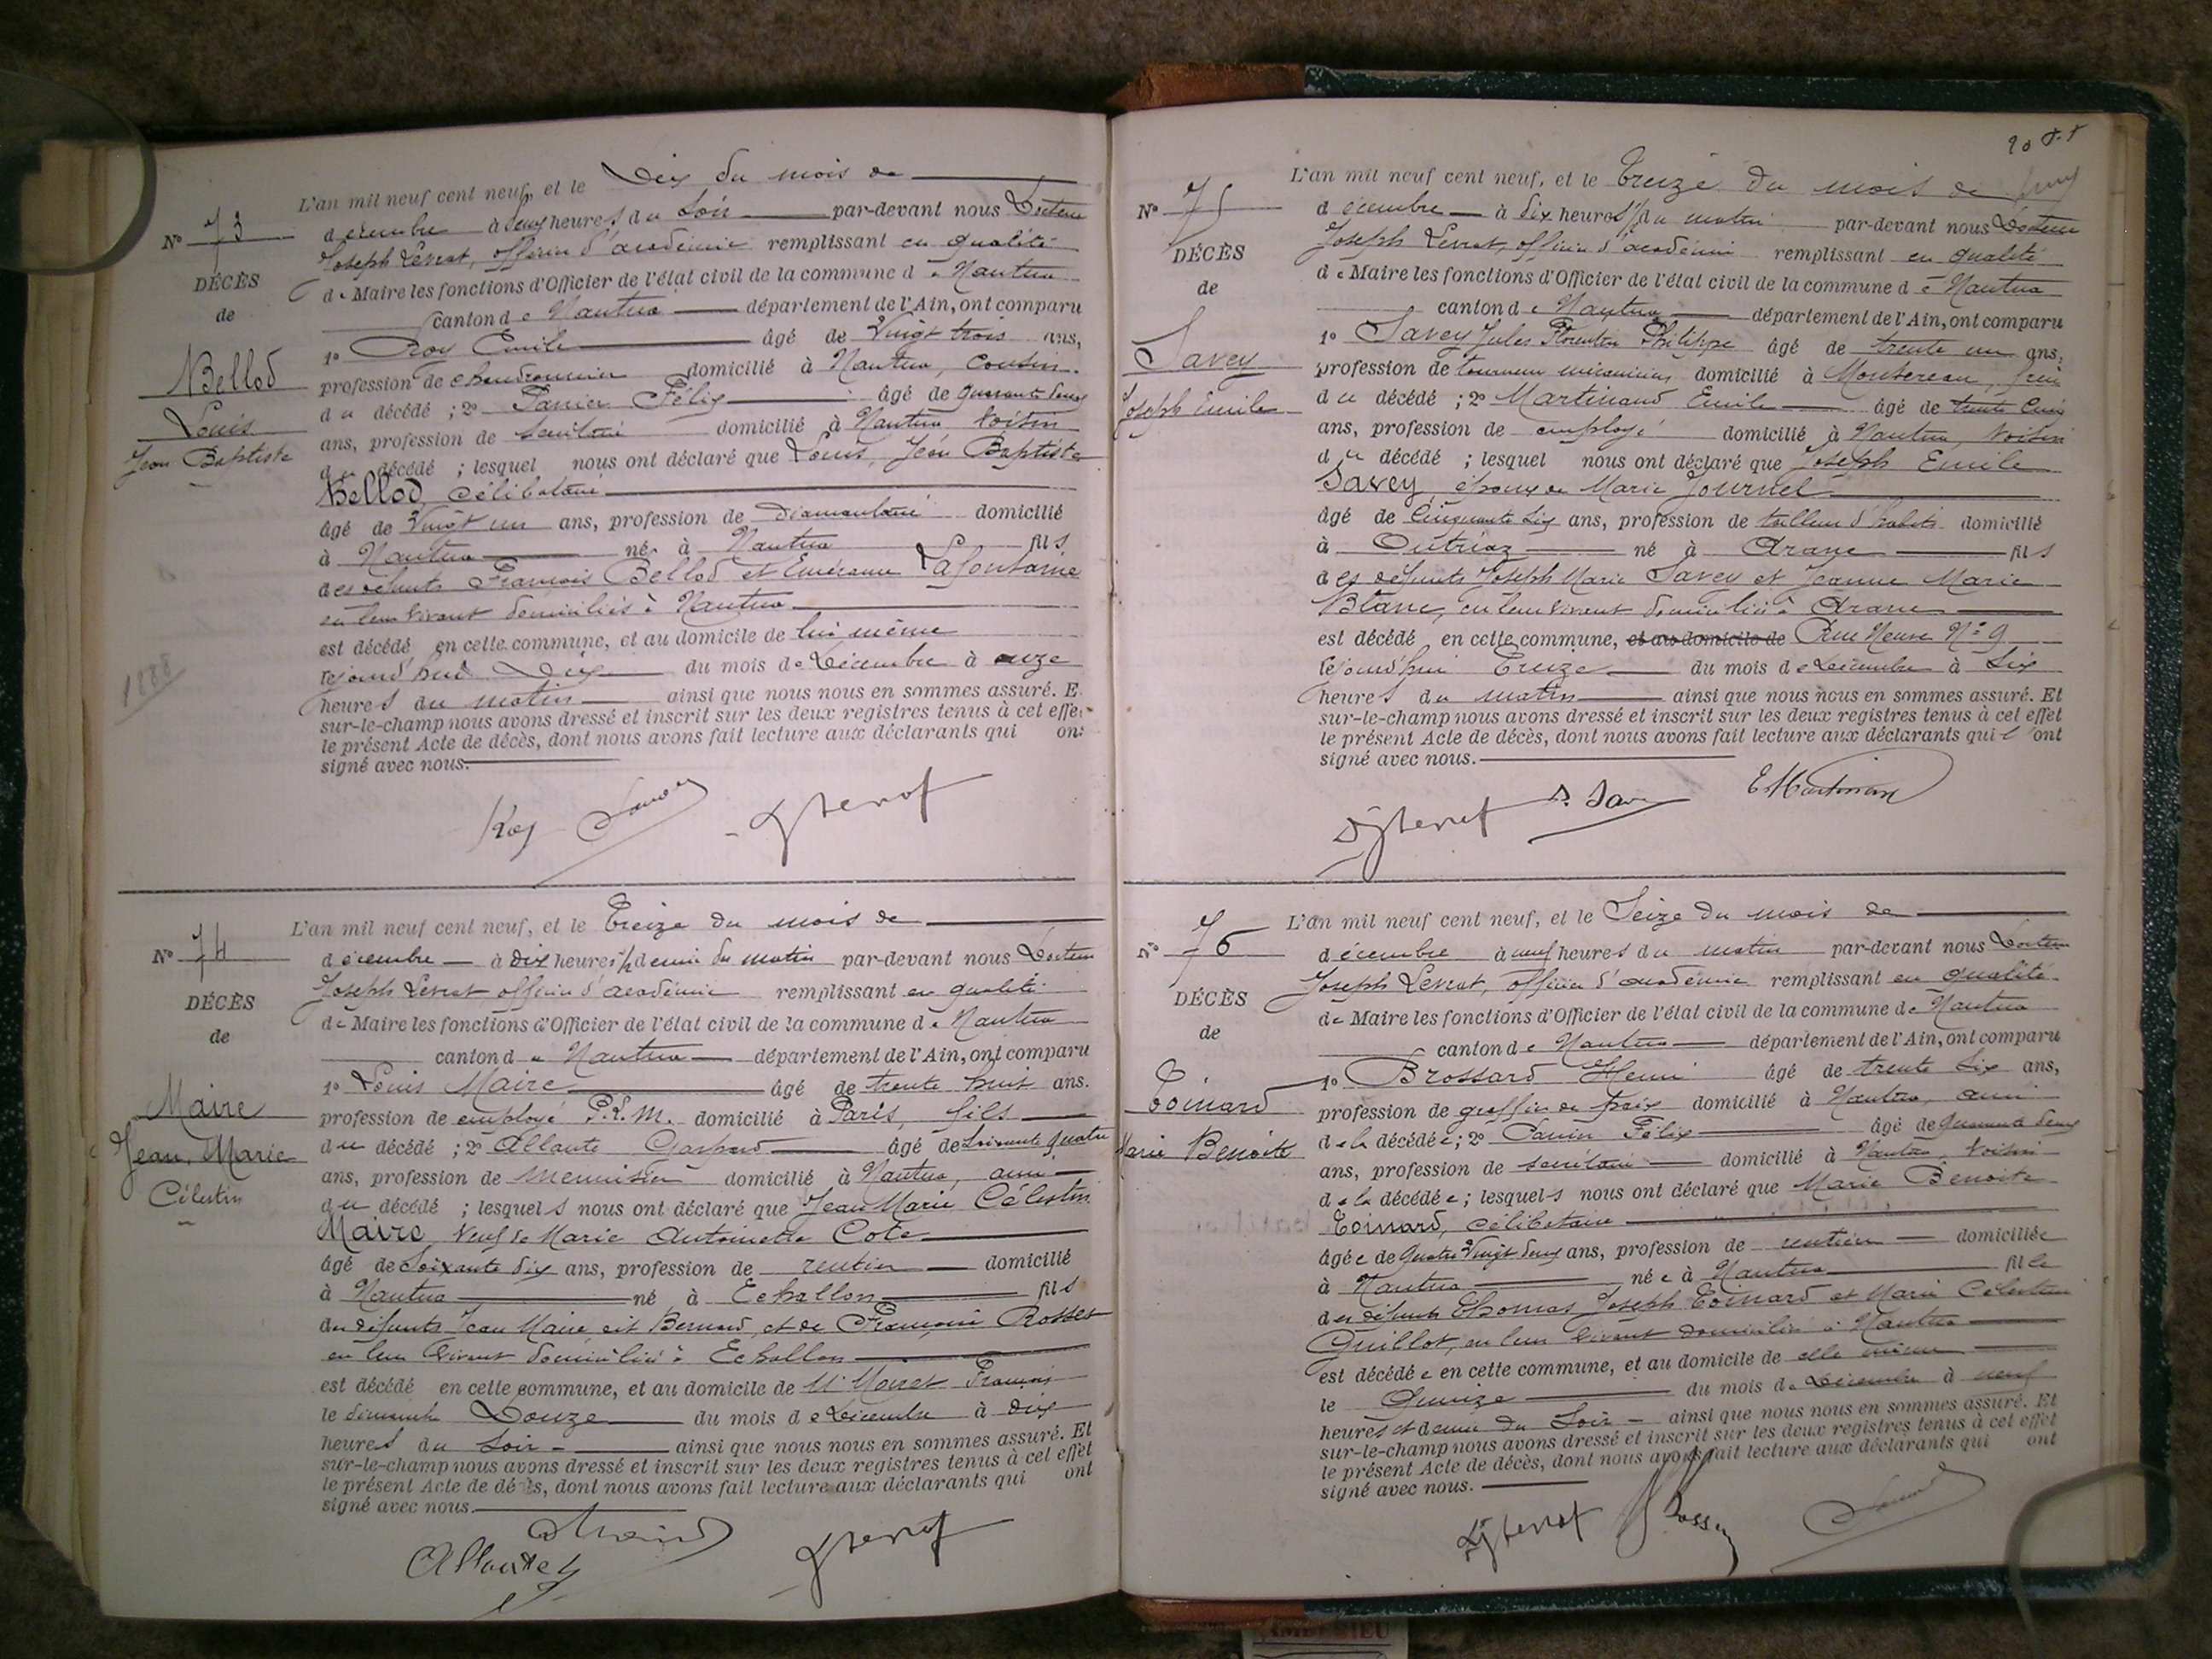 N° 73
DÉCÈS
de
Bellod
Louis
Jean Baptiste
1888
L'an mil neuf cent neuf, et le Dix du mois de
décembre à deux heures du Soir par-devant nous Docteur
Joseph Levrat, officier d'académie remplissant en qualité
de Maire les fonctions d'Officier de l'état civil de la commune de Nantua
canton de Nantua département de l'Ain, ont comparu
1° Roy Emile âgé de Vingt trois ans,
profession de chaudronnier domicilié à Nantua, Cousin
du décédé ; 2° Janier Félix âgé de quarante deux
ans, profession de secrétaire domicilié à Nantua voisin
du décédé ; lesquel nous ont déclaré que Louis, Jean Baptiste
Bellod, célibataire
âgé de Vingt un ans, profession de Diamantaire domicilié
à Nantua né à Nantua fils
des défunts François Bellod et Emérance Lafontaine
en leur vivant domiciliés à Nantua
est décédé en cette commune, et au domicile de lui même
cejourd'hui Dix du mois de Décembre à onze
heures du matin ainsi que nous nous en sommes assuré. E
sur-le-champ nous avons dressé et inscrit sur les deux registres tenus à cet effet
le présent Acte de décès, dont nous avons fait lecture aux déclarants qui ont
signé avec nous.
Roy
N° 74
DÉCÈS
de
Maire
Jean, Marie
Célestin
L'an mil neuf cent neuf, et le Treize du mois de
décembre à dix heures 1/2 demie du matin par-devant nous Docteur
Joseph Levrat officier d'académie remplissant en qualité
de Maire les fonctions d'Officier de l'état civil de la commune de Nantua
canton de Nantua département de l'Ain, ont comparu
1° Louis Maire âgé de trente huit ans.
profession de employé P.L.M. domicilié à Paris, fils
du décédé ; 2° Allante Gaspard âgé de Soixante quatre
ans, profession de menuisier domicilié à Nantua, ami
du décédé ; lesquels nous ont déclaré que Jean Marie Célestin
Maire Veuf de Marie Antoinette Cote
âgé de Soixante dix ans, profession de rentier domicilié
à Nantua né à Echallon fils
des défunts Jean Maire dit Bernard, et de Françoise Rosset
en leur vivant domiciliés à Echallon
est décédé en cette commune, et au domicile de Mr François
le dimanche Douze du mois de Décembre à dix
heures du Soir ainsi que nous nous en sommes assuré. Et
sur-le-champ nous avons dressé et inscrit sur les deux registres tenus à cet effet
le présent Acte de décès, dont nous avons fait lecture aux déclarants qui ont
signé avec nous.
N° 75
DÉCÈS
de
Savey
Joseph Emile
L'an mil neuf cent neuf, et le Treize du mois de
décembre à dix heures 1/2 du matin par-devant nous Docteur
Joseph Levrat, officier d'académie remplissant en qualité
de Maire les fonctions d'Officier de l'état civil de la commune de Nantua
canton de Nantua département de l'Ain, ont comparu
1° Savey Jules Florentin Philippe âgé de trente un ans,
profession de tourneur mécanicien domicilié à Montereau,
du décédé ; 2° Martinand Emile âgé de trente cinq
ans, profession de employé domicilié à Nantua, voisin
du décédé ; lesquel nous ont déclaré que Joseph Emile
Savey, époux de Marie Journet
âgé de Cinquante six ans, profession de tailleur d'habits domicilié
à Outriaz né à Arane fils
des défunts Joseph Marie Savey et Jeanne Marie
Blanc, en leur vivant domiciliés à Arane
est décédé en cette commune, et au domicile de Rue Neuve N° 9
cejourd'hui Treize du mois de Décembre à Six
heures du matin ainsi que nous nous en sommes assuré. Et
sur-le-champ nous avons dressé et inscrit sur les deux registres tenus à cet effet
le présent Acte de décès, dont nous avons fait lecture aux déclarants qui l'ont
signé avec nous.
E Martinand
N° 76
DÉCÈS
de
Toinard
Marie Benoite
L'an mil neuf cent neuf, et le Seize du mois de
décembre à neuf heures du matin par-devant nous Docteur
Joseph Levrat, officier d'académie remplissant en qualité
de Maire les fonctions d'Officier de l'état civil de la commune de Nantua
canton de Nantua département de l'Ain, ont comparu
1° Brossard Henri âgé de trente six ans,
profession de greffier de paix domicilié à Nantua, ami
de la décédée ; 2° Janier Félix âgé de quarante deux
ans, profession de secrétaire domicilié à Nantua, voisin
de la décédée ; lesquels nous ont déclaré que Marie Benoite
Toinard, célibataire
âgée de Quatre Vingt deux ans, profession de rentière domiciliée
à Nantua née à Nantua fille
des défunts Thomas Joseph Toinard et Marie Célestine
Guillot, en leur vivant domiciliés à Nantua
est décédée en cette commune, et au domicile de elle même
le Quinze du mois de Décembre à neuf
heures et demie du Soir ainsi que nous nous en sommes assuré. Et
sur-le-champ nous avons dressé et inscrit sur les deux registres tenus à cet effet
le présent Acte de décès, dont nous avons fait lecture aux déclarants qui ont
signé avec nous.